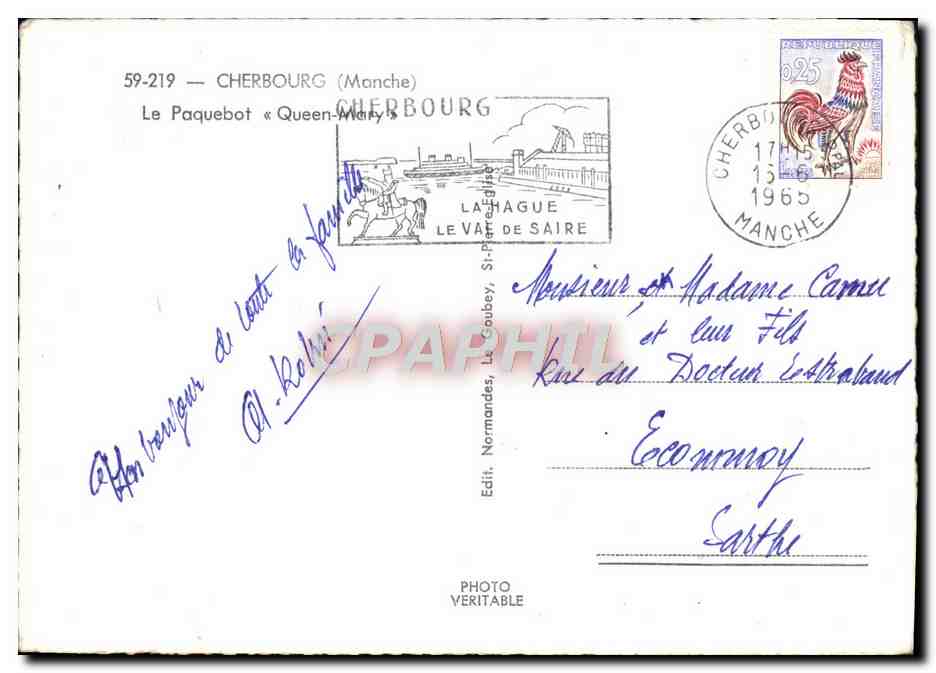 59-219 — CHERBOURG (Manche)
Le Paquebot « Queen-Mary »
CHERBOURG
LA HAGUE
LE VAL DE SAIRE
REPUBLIQUE FRANCAISE
0,25
CHERBOURG
17H15
15-6
1965
MANCHE
bonjour de toute la famille
Monsieur et Madame Camu
et leur Fils
Rue du Docteur Estrabaud
Ecommoy
Sarthe
CPAPHIL
Edit. Normandes, Le Goubey, St-Pierre-Eglise
PHOTO
VERITABLE